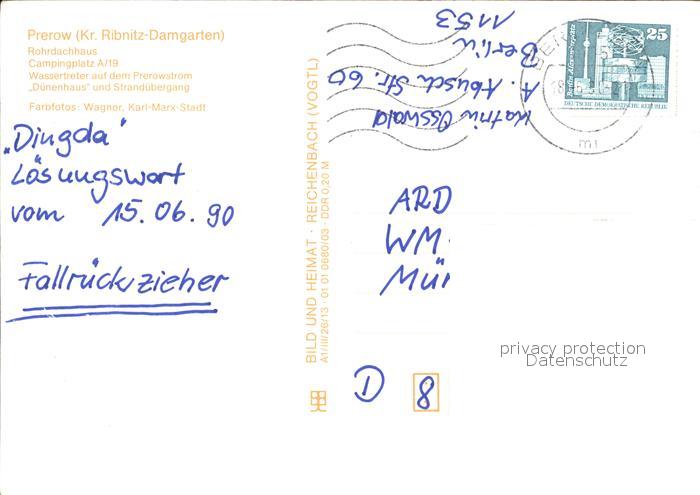 Prerow (Kr. Ribnitz-Damgarten)
Rohrdachhaus
Campingplatz A/19
Wassertreter auf dem Prerowstrom
„Dünenhaus" und Strandübergang
Farbfotos: Wagner, Karl-Marx-Stadt
„Dingda"
Lösungswort
vom 15.06.90
Fallrückzieher
BILD UND HEIMAT · REICHENBACH (VOGTL)
A1/III/26/13 · 01 01 0680/03 · DDR 0,20 M
Katrin Osswald
A. Kbusch Str. 60
Berlin
1153
25
Berlin, Alexanderplatz
DEUTSCHE DEMOKRATISCHE REPUBLIK
BER
m1
ARD
WM
Mü
D 8
privacy protection
Datenschutz